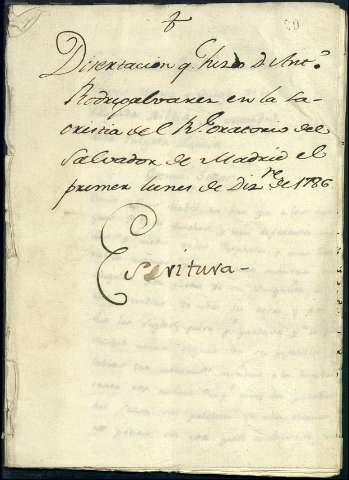 Disertacion q.e hizo D. Ant.o
Rodrigalvarez en la Sa-
cristia del R.l Oratorio del
Salvador de Madrid el
primer lunes de Diz.re de 1786
Escritura-